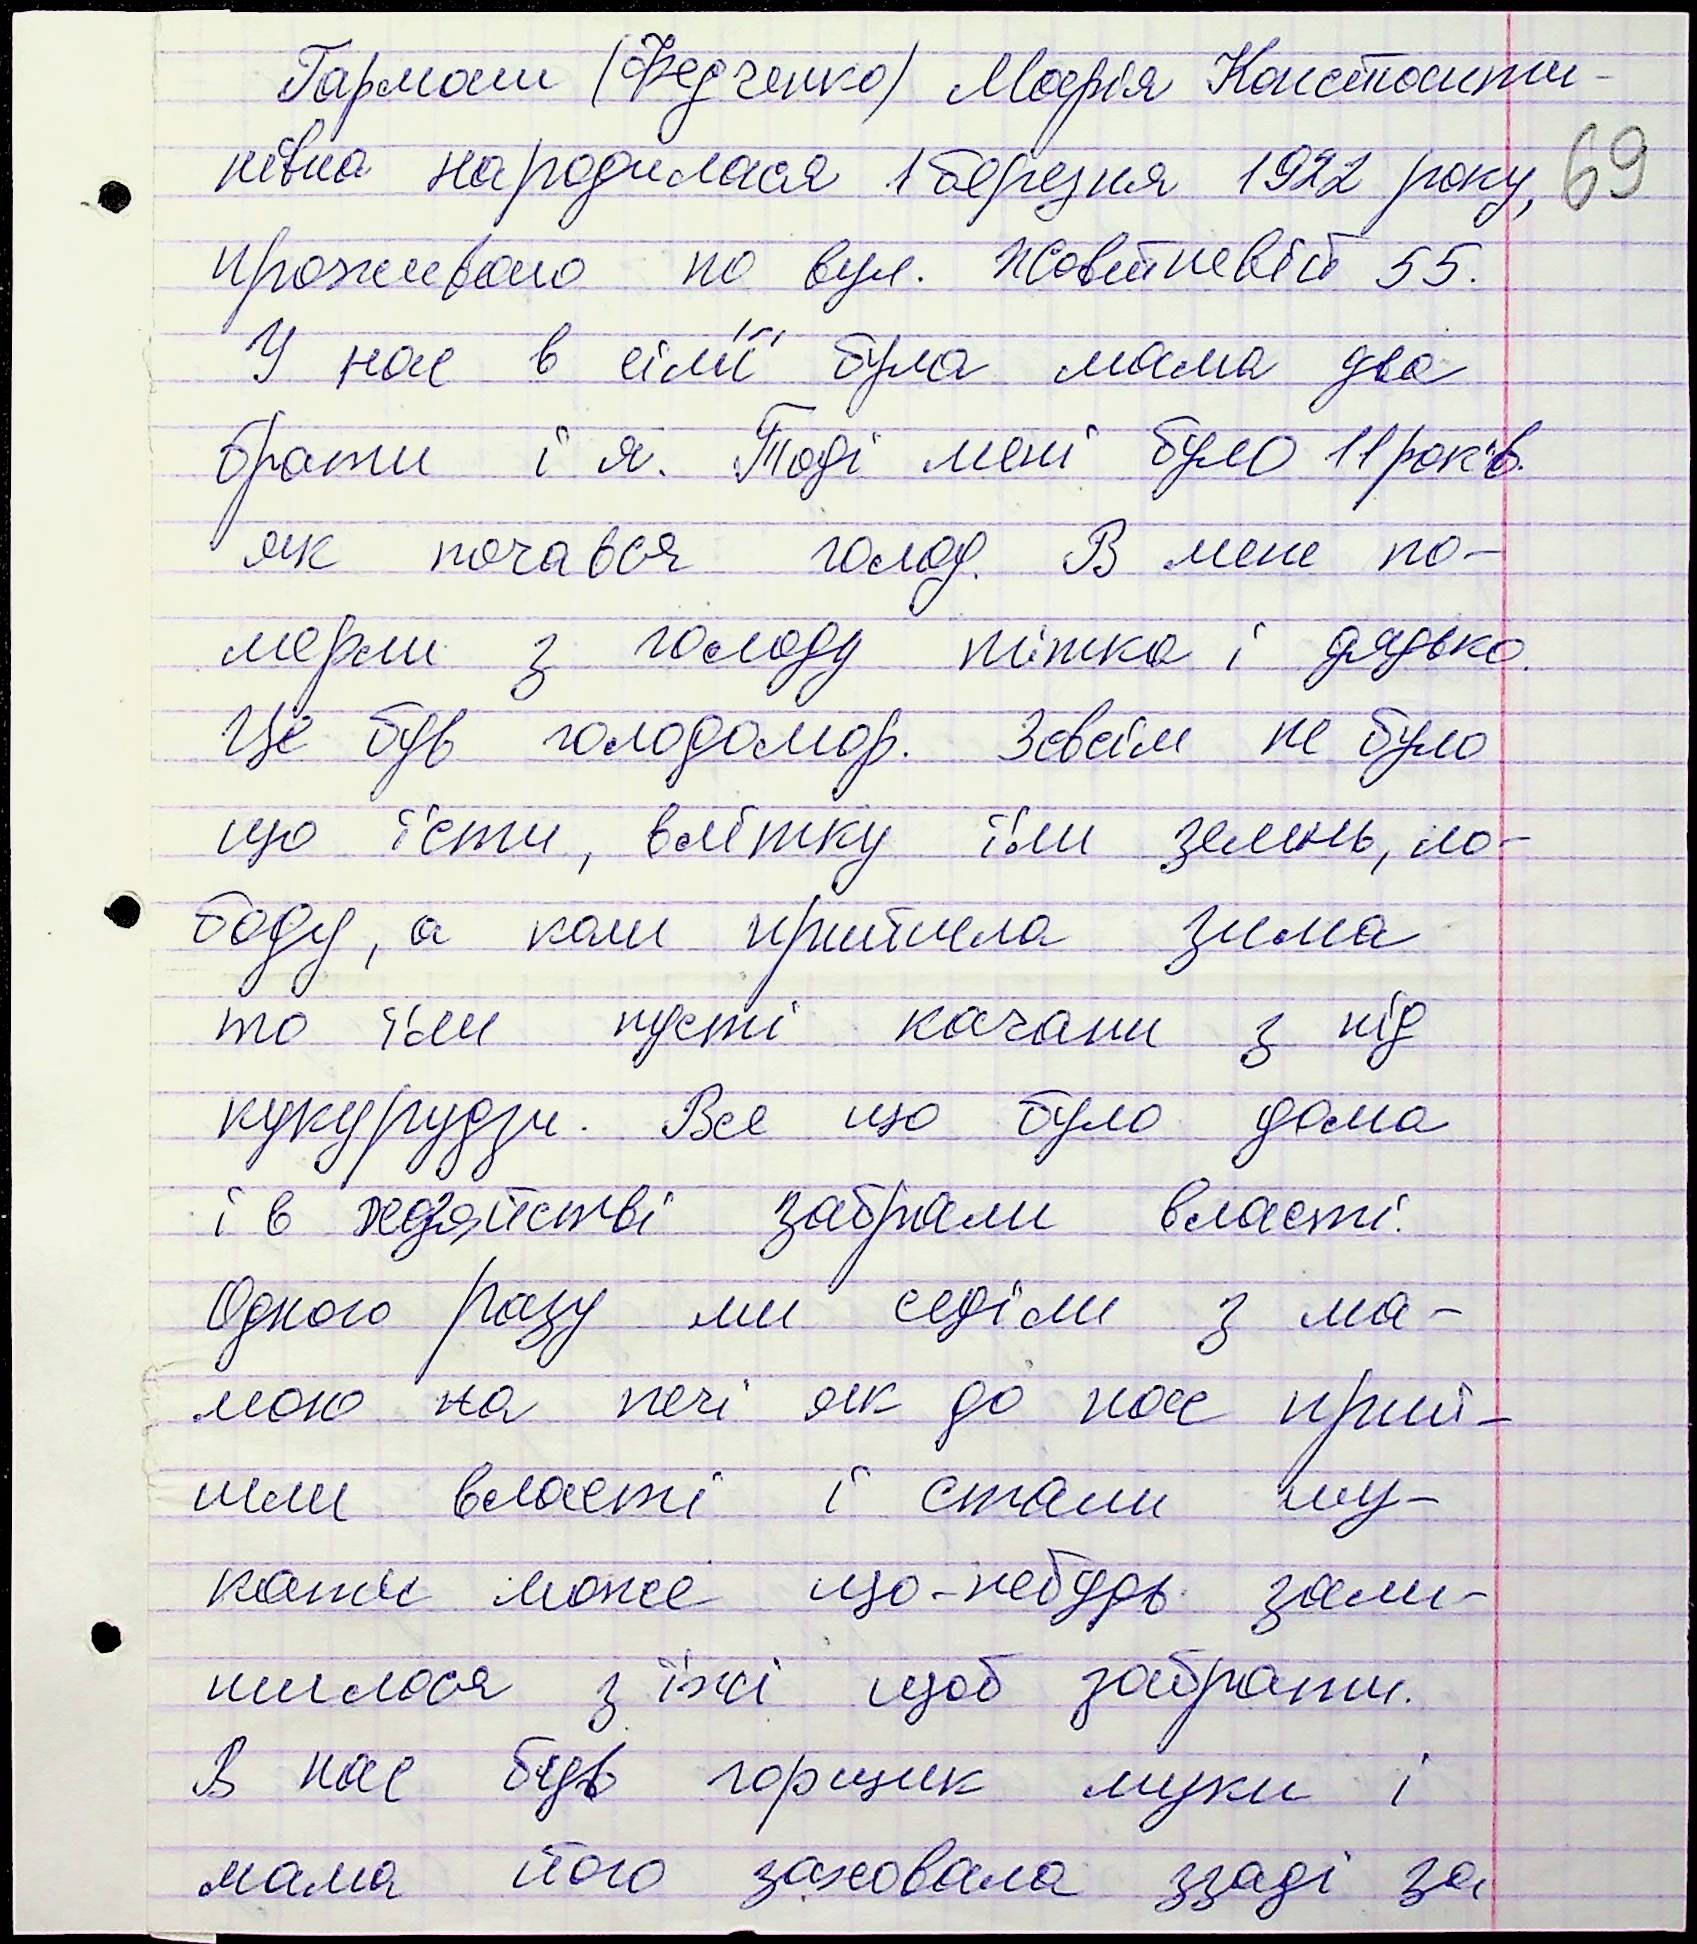 Гармаш (Федченко) Марія Константи-
нівна народилася 1 березня 1922 року, 69
проживаю по вул. Жовтневій 55.
У нас в сімї була мама два
брати і я. Тоді мені було 11 років.
як почався голод. В мене по-
мерли з голоду тітка і дядько.
Це був голодомор. Зовсім не було
що їсти, влітку їли зелень, ло-
боду, а коли прийшла зима
то їли пусті качани з під
кукурудзи. Все що було дома
і в хазяйстві забрали власті.
Одного разу ми седіли з ма-
мою на печі як до нас прий-
шли власті і стали шу-
кати може що-небудь зали-
шилося з їжі щоб забрати.
В нас був горщик муки і
мама його заховала ззаді за